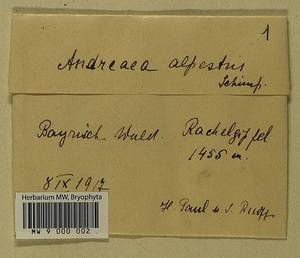 1
Andreaea alpestris
Schimp.
Bayrisch. Wald. Rachelgipfel
1455 m.
8 IX 1917
Herbarium MW, Bryophyta
MW 9 000 002
H. Paul u.